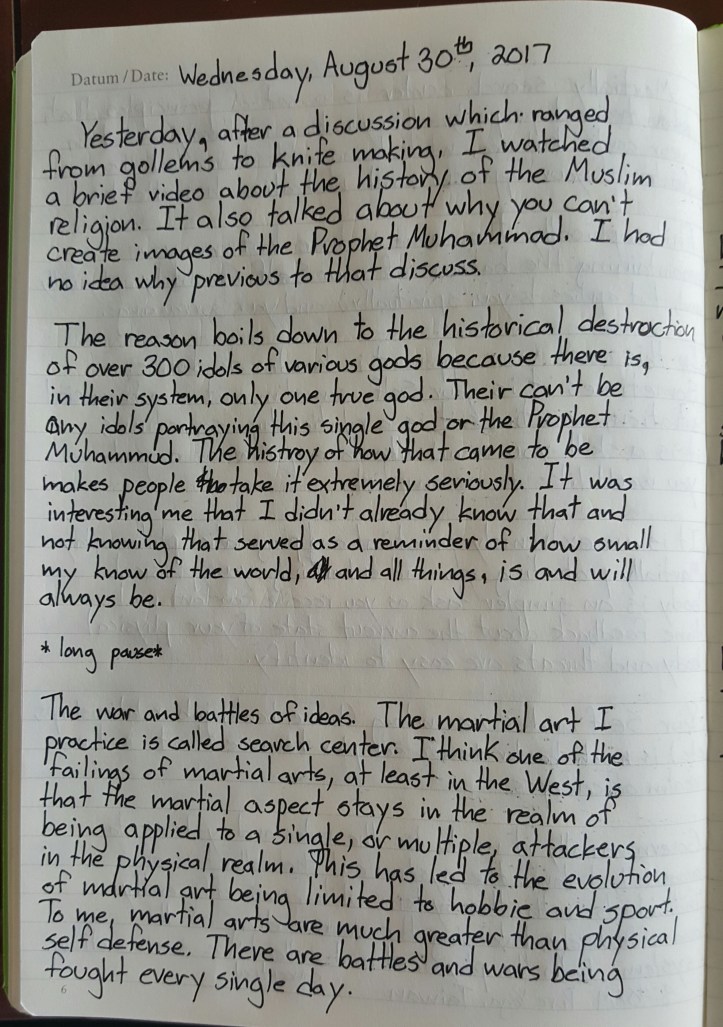 Datum / Date: Wednesday, August 30th, 2017
Yesterday, after a discussion which ranged
from gollems to knife making, I watched
a brief video about the history of the Muslim
religion. It also talked about why you can't
create images of the Prophet Muhammad. I had
no idea why previous to that discuss.
The reason boils down to the historical destraction
of over 300 idols of various gods because there is,
in their system, only one true god. Their can't be
any idols portraying this single god or the Prophet
Muhammud. The histroy of how that came to be
makes people take it extremely seriously. It was
interesting me that I didn't already know that and
not knowing that served as a reminder of how small
my know of the world, and all things, is and will
always be.
* long pause*
The war and battles of ideas. The martial art I
practice is called search center. I think one of the
failings of martial arts, at least in the West, is
that the martial aspect stays in the realm of
being applied to a single, or multiple, attackers
in the physical realm. This has led to the evolution
of martial art being limited to hobbie and sport.
To me, martial arts are much greater than physical
self defense. There are battles and wars being
fought every single day.
6